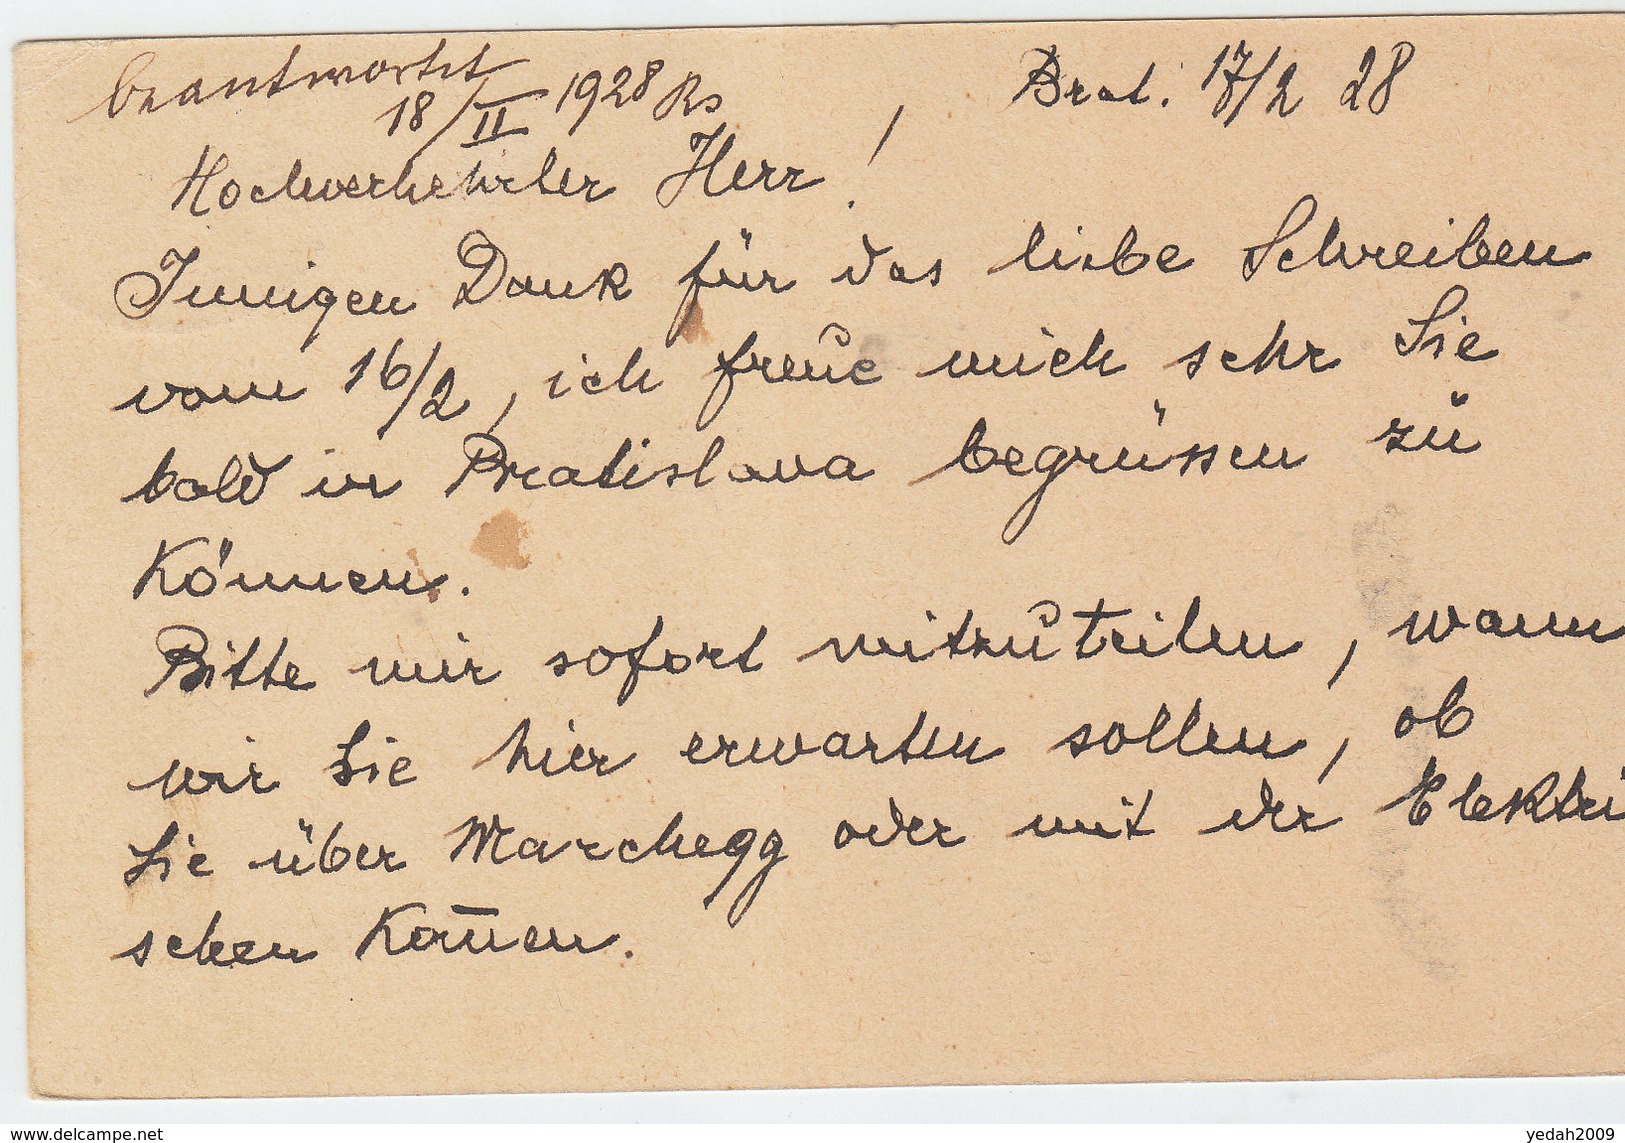 beantwortet
18/II 1928 Rs
Brat. 17/2 28
Hochverehrter Herr!
Innigen Dank für das liebe Schreiben
vom 16/2, ich freue mich sehr Sie
bald in Pratislava begrüssen zu
Können.
Bitte mir sofort mitzuteilen, wann
wir Sie hier erwarten sollen, ob
Sie über Marchegg oder mit der Elektri
schen Kom̄en.
delcampe.net
yedah2009